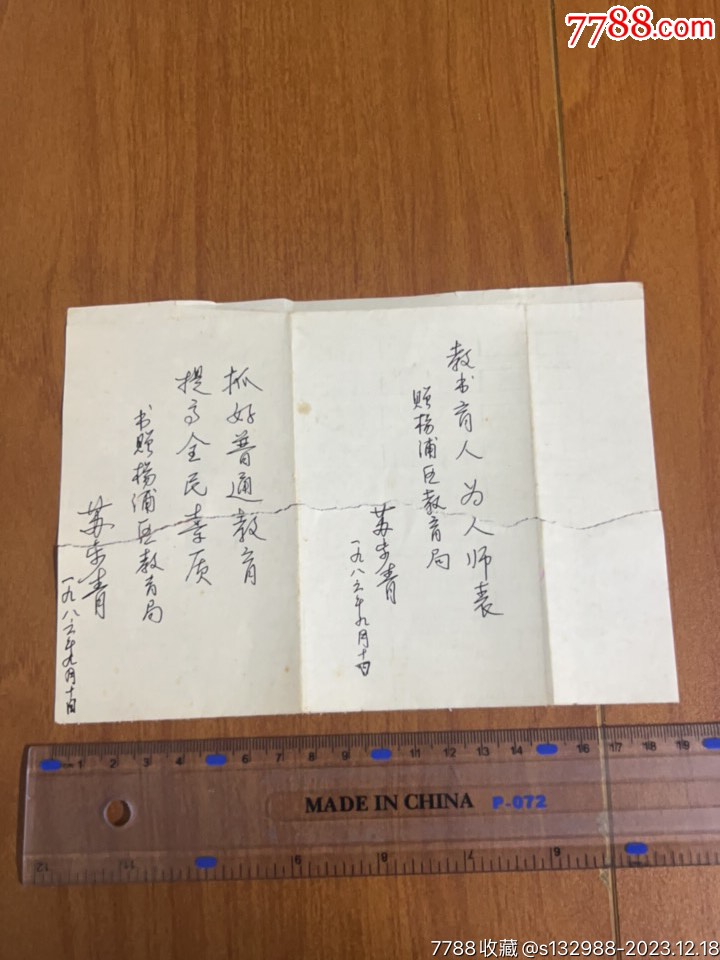 7788.com
教书育人 为人师表
赠杨浦区教育局
苏步青
一九八六年九月十日
抓好普通教育
提高全民素质
书赠杨浦区教育局
苏步青
一九八六年九月十日
cm 1 2 3 4 5 6 7 8 9 10 11 12 13 14 15 16 17 18 19
MADE IN CHINA P-072
12 11 9 8 7 6
7788收藏 @s132988-2023.12.18